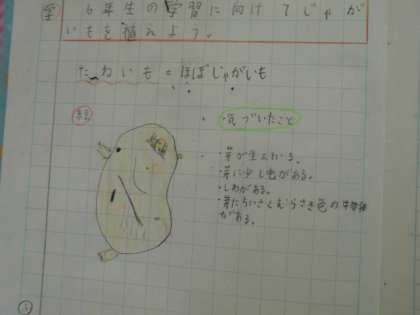 学 6年生の学習に向けてじゃが
いもを植えよう。
たねいも＝ほぼじゃがいも
絵
・気づいたこと
・芽が生えている。
・芽に少し毛がある。
・しわがある。
・芽たちいさくむらさき色の
がある。